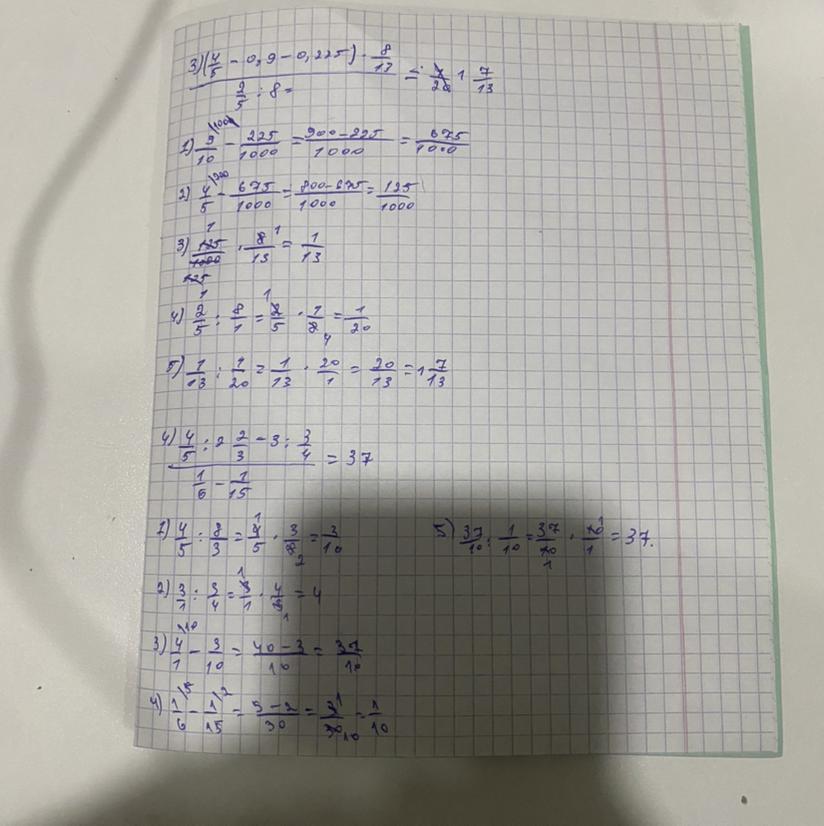 3) (4/5 - 0,9 - 0,225) · 8/13 / 2/5 : 8 = = 1 7/13
1) 9/10 - 225/1000 = 900-225/1000 = 675/1000
2) 4/5 - 675/1000 = 800-675/1000 = 125/1000
3) 125/1000 · 8/13 = 1/13
4) 2/5 : 8/1 = 2/5 · 1/8 = 1/20
5) 1/13 : 1/20 = 1/13 · 20/1 = 20/13 = 1 7/13
4) 4/5 : 2 2/3 - 3 : 3/4 / 1/6 - 1/15 = 37
1) 4/5 : 8/3 = 4/5 · 3/8 = 3/10
2) 3/1 : 3/4 = 3/1 · 4/3 = 4
3) 4/1 - 3/10 = 40-3/10 = 37/10
4) 1/6 - 1/15 = 5-2/30 = 3/30 = 1/10
5) 37/10 : 1/10 = 37/10 · 10/1 = 37.